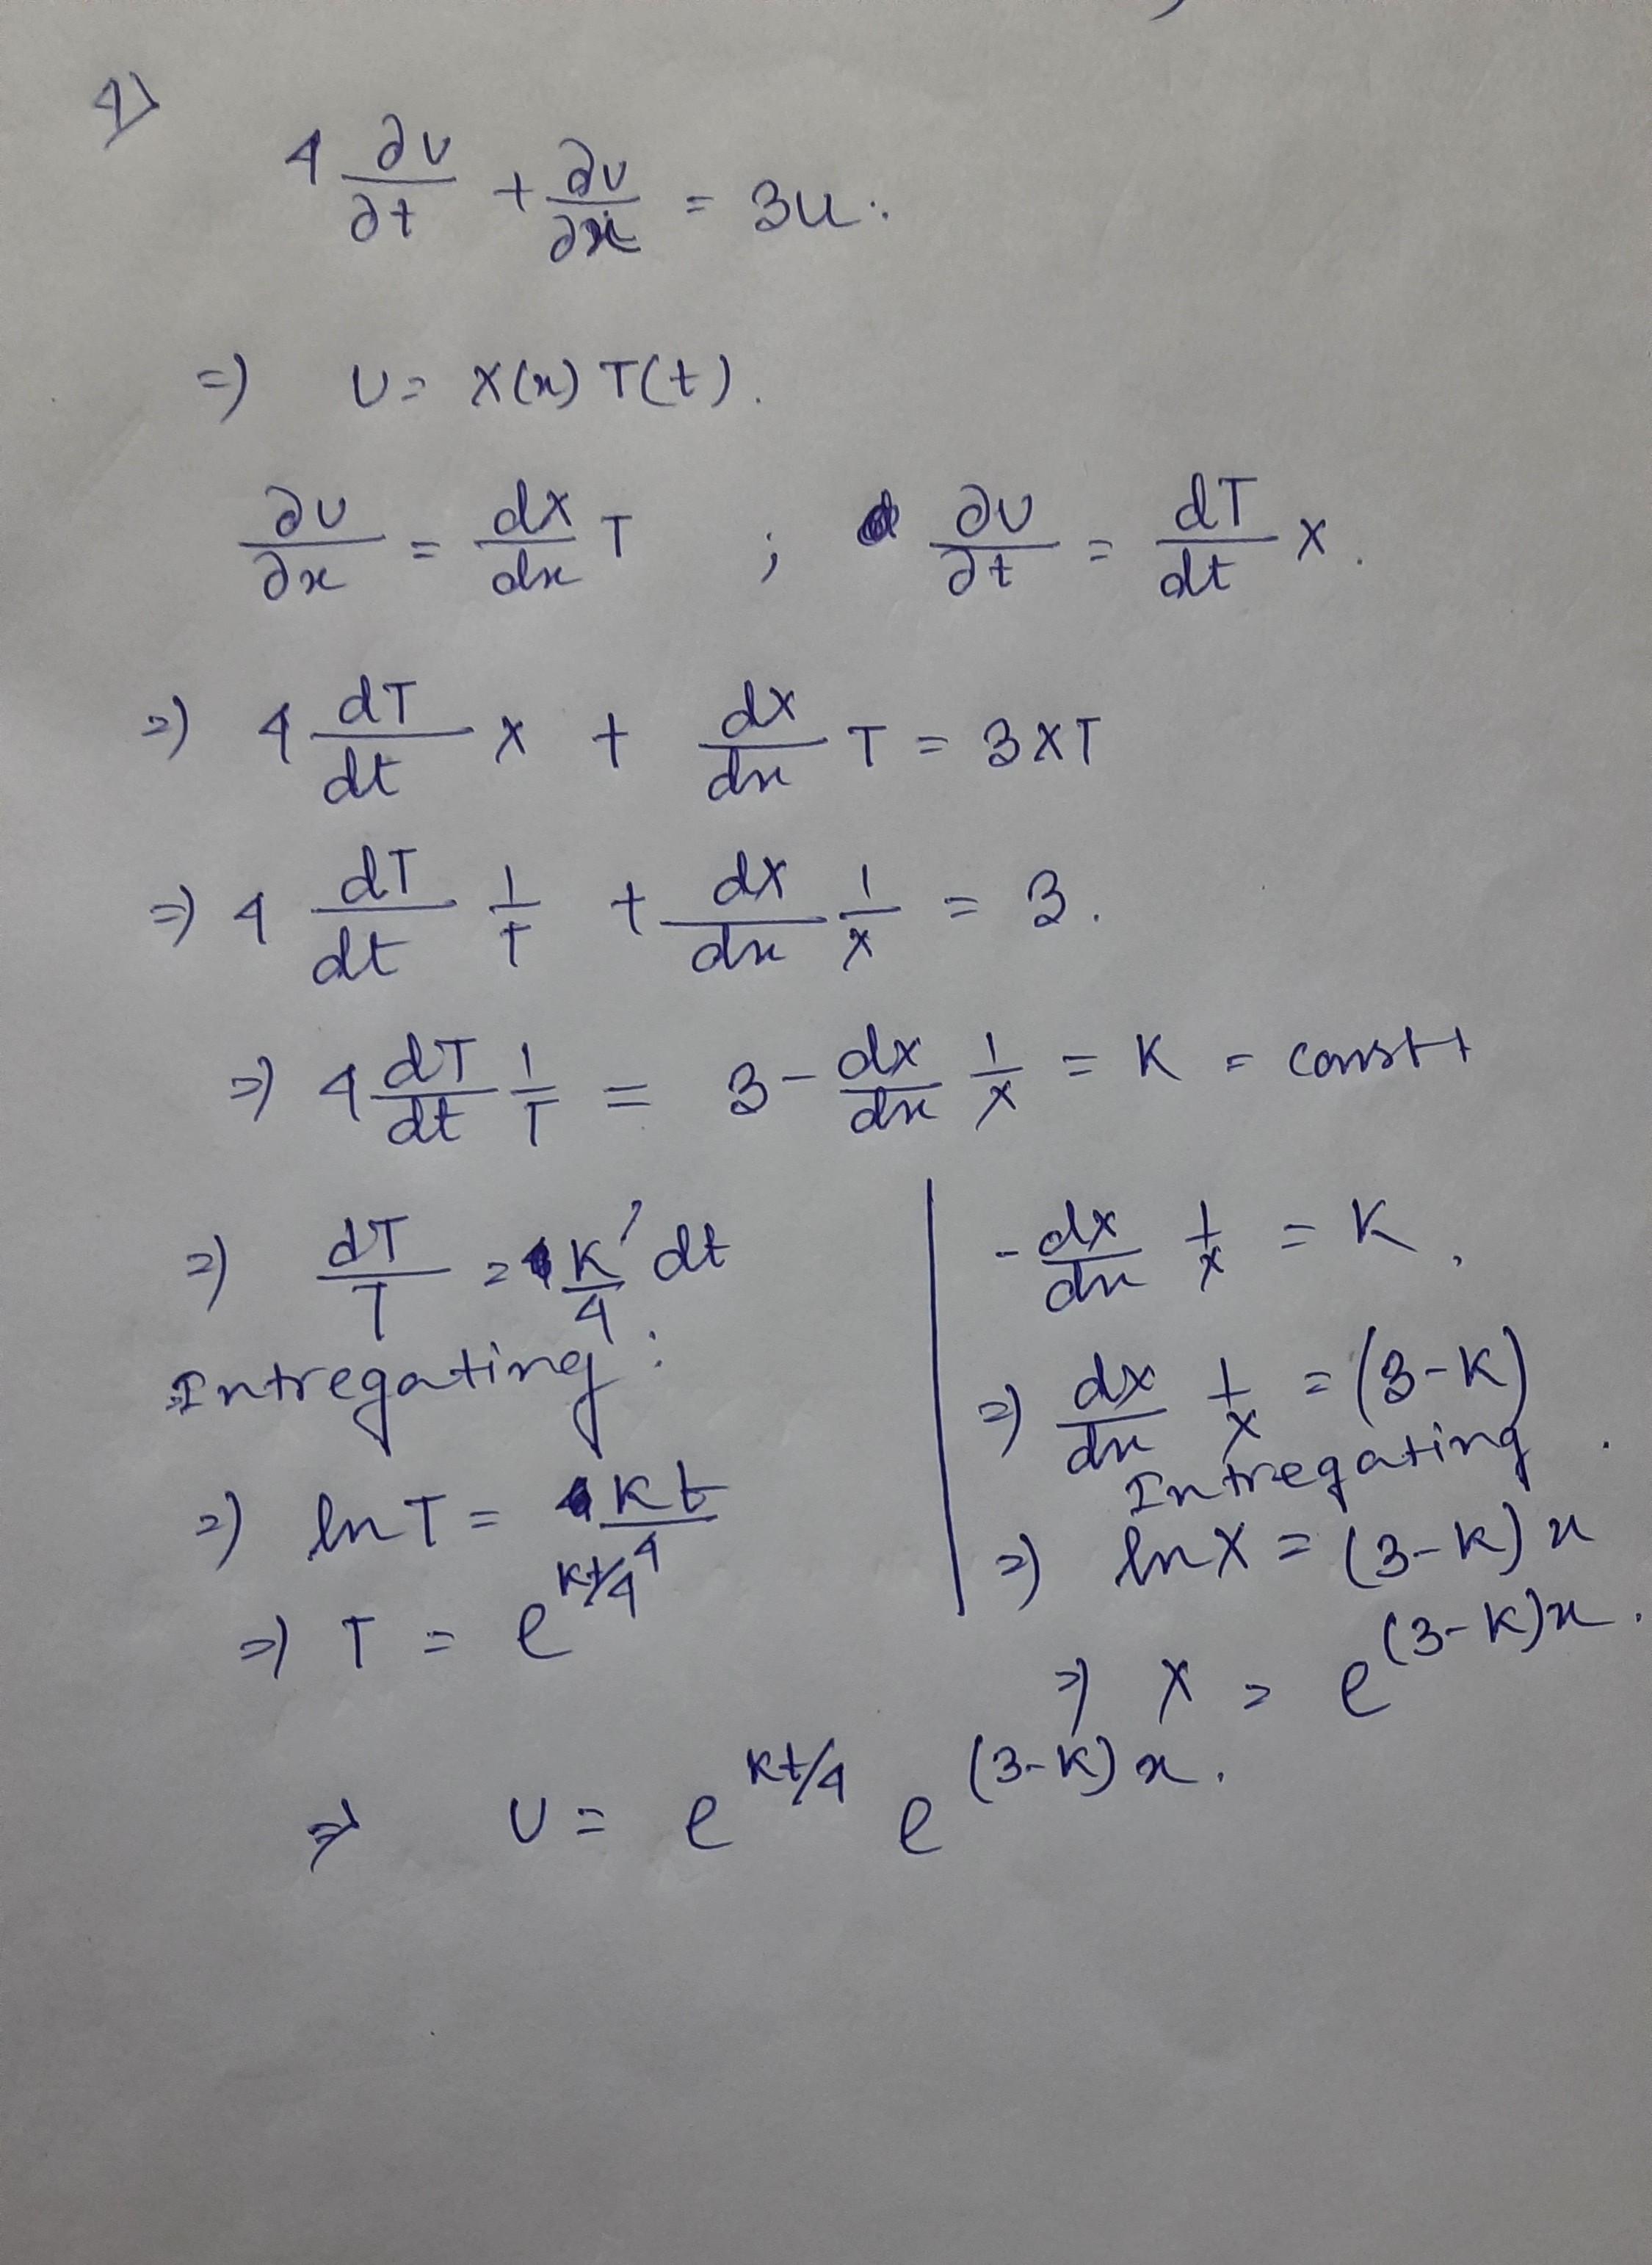 4)
4 ∂U/∂t + ∂U/∂x = 3u.
=) U = X(x) T(t).
∂U/∂x = dX/dx T ; ∂U/∂t = dT/dt X.
=) 4 dT/dt X + dX/dx T = 3XT
=) 4 dT/dt 1/T + dX/dx 1/X = 3.
=) 4 dT/dt 1/T = 3 - dX/dx 1/X = K = constt
=) dT/T = K/4 dt
Intregating:
=) ln T = Kt/4
=) T = e^{Kt/4}
- dX/dx 1/X = K.
=) dX/dx 1/X = (3-K)
Intregating.
=) ln X = (3-K) x
=) X = e^{(3-K)x}.
=> U = e^{Kt/4} e^{(3-K)x}.